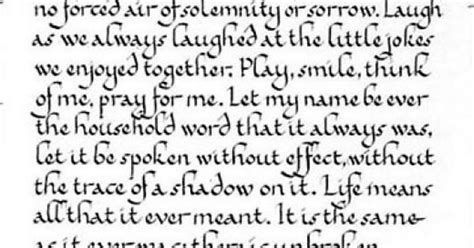 no forced air of solemnity or sorrow. Laugh
as we always laughed at the little jokes
we enjoyed together. Play, smile, think
of me, pray for me. Let my name be ever
the household word that it always was,
let it be spoken without effect, without
the trace of a shadow on it. Life means
all that it ever meant. It is the same
as it ever was; there is unbroken